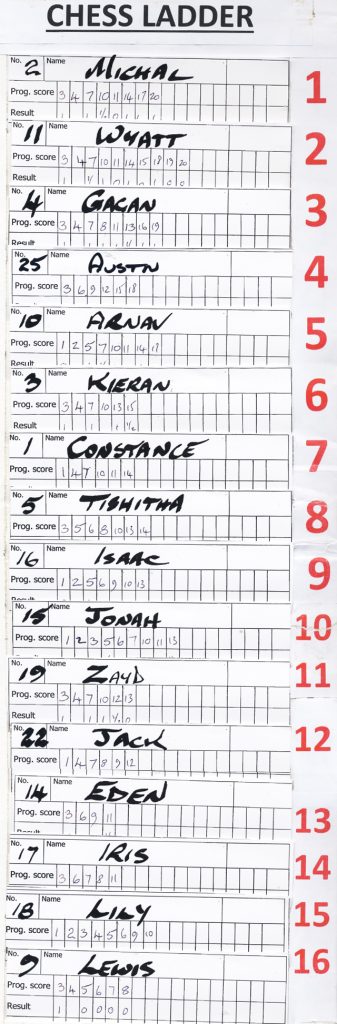 CHESS LADDER
No. 2 Name MICHAL
Prog. score 3 4 7 10 11 14 17 20
Result 1 1 ½ 0 1 1 1 1
1
No. 11 Name WYATT
Prog. score 3 4 7 10 11 14 15 18 19 20
Result
2
No. 4 Name GAGAN
Prog. score 3 4 7 8 11 13 16 19
Result
3
No. 25 Name AUSTN
Prog. score 3 6 9 12 15 18
4
No. 10 Name ARNAV
Prog. score 1 2 5 7 10 11 14 17
5
No. 3 Name KIERAN
Prog. score 3 4 7 10 13 15
Result
6
No. 1 Name CONSTANCE
Prog. score 1 4 7 10 11 14
7
No. 5 Name TISHITHA
Prog. score 3 5 6 8 10 13 14
8
No. 16 Name ISAAC
Prog. score 1 2 5 6 9 10 13
9
No. 15 Name JONAH
Prog. score 1 2 3 5 6 7 10 11 13
10
No. 19 Name ZAYD
Prog. score 3 4 7 10 12 13
Result 1 1 1 ½ 0
11
No. 22 Name JACK
Prog. score 1 4 7 8 9 12
12
No. 14 Name EDEN
Prog. score 3 6 9 11
13
No. 17 Name IRIS
Prog. score 3 6 7 8 11
14
No. 18 Name LILY
Prog. score 1 2 3 4 5 6 9 10
15
No. 9 Name LEWIS
Prog. score 3 4 5 6 7 8
Result 1 0 0 0 0
16